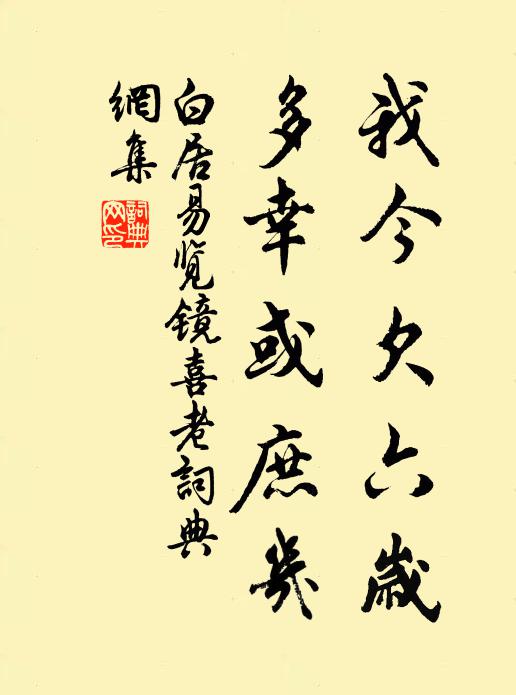 我今欠六歲
多幸或庶幾
白居易览鏡喜老詞典
網集
詞典网印